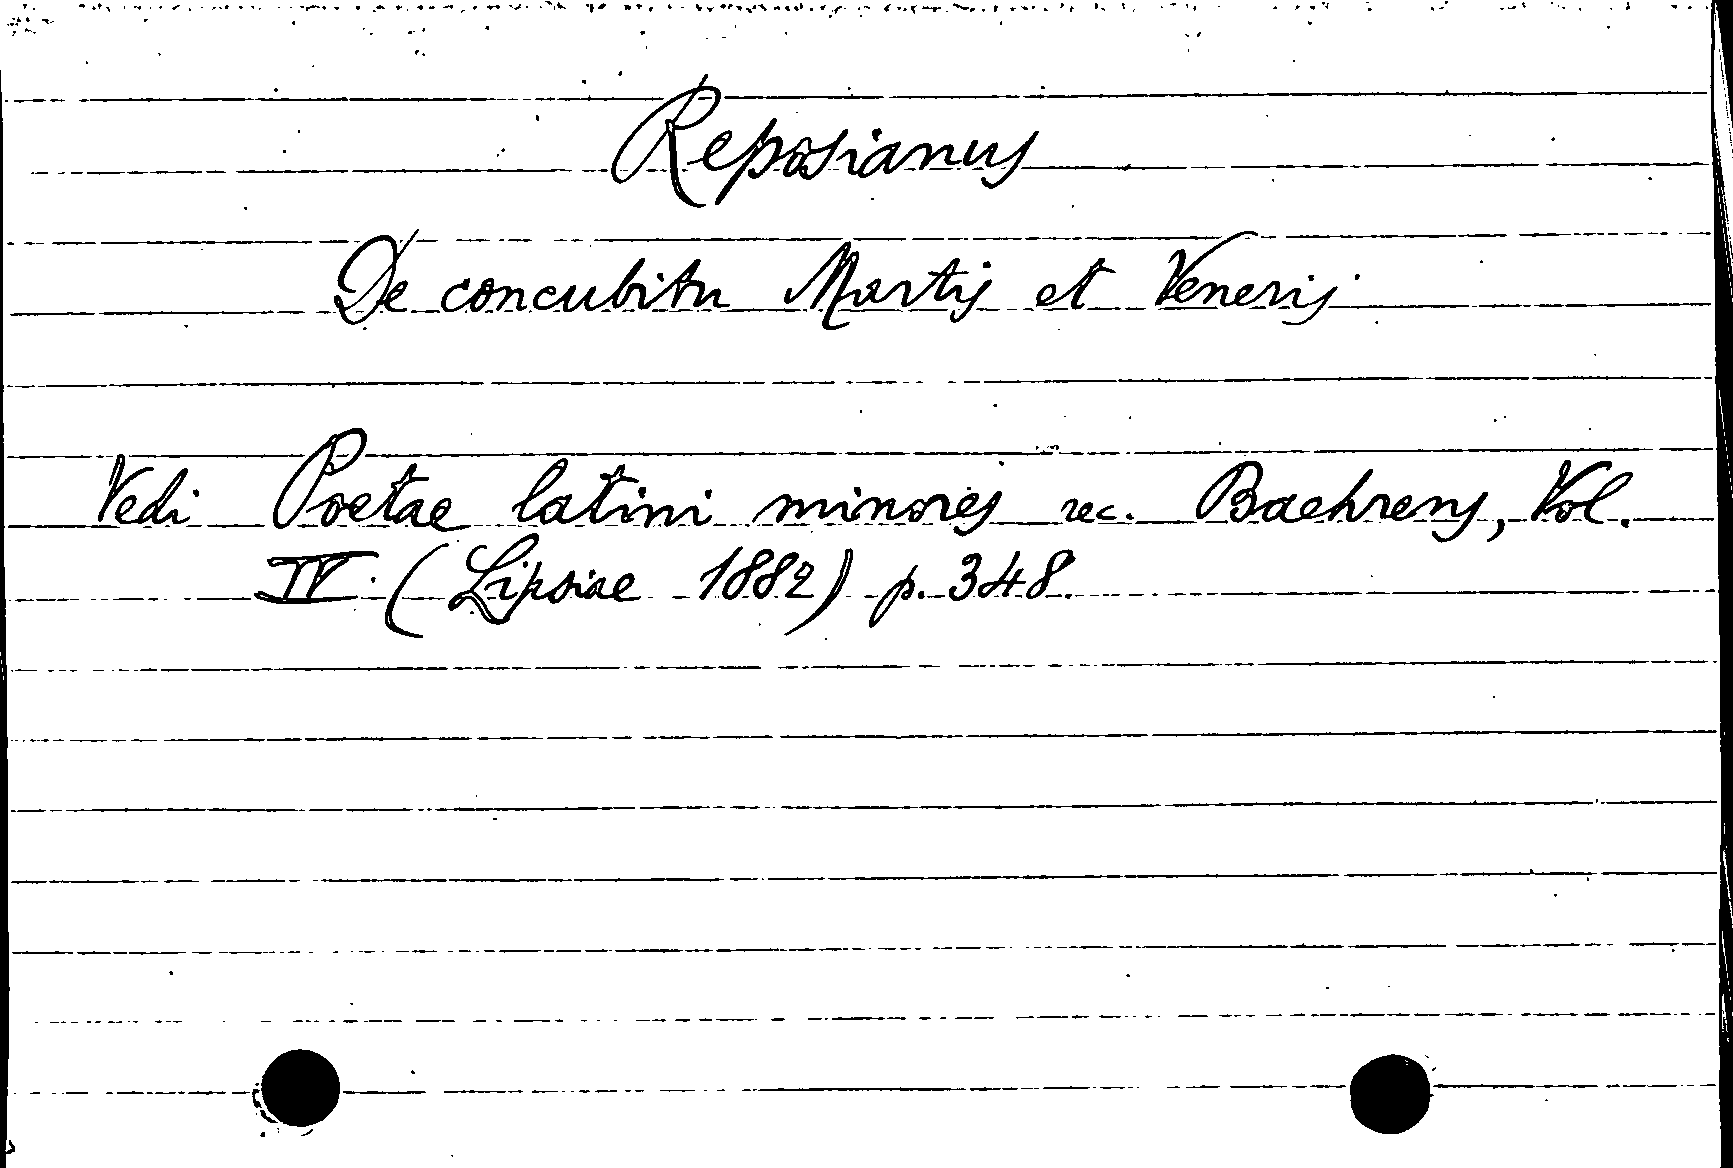 Reposianus
De concubitu Martis et Veneris
Vedi Poetae latini minores rec. Baehrens, Vol.
IV. (Lipsiae 1882) p. 348.